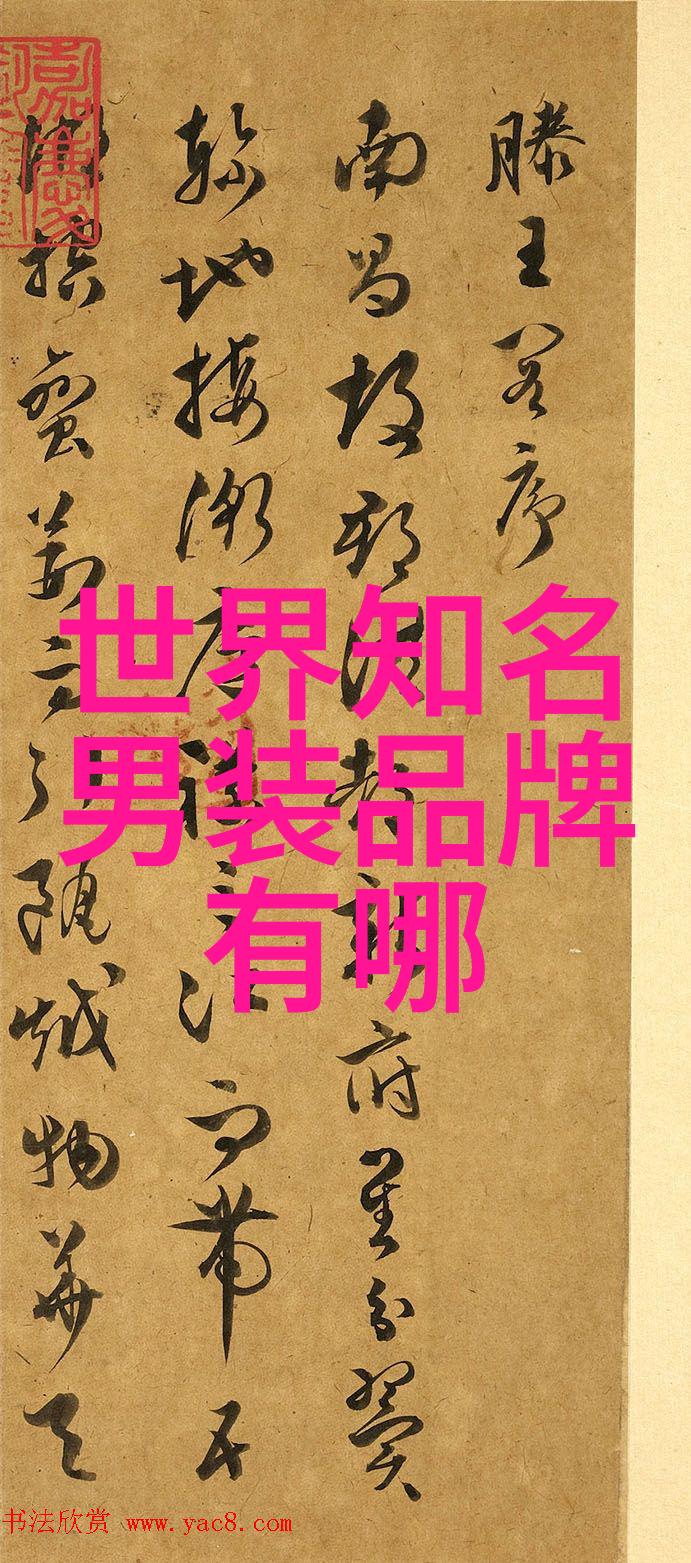 滕王閣序
南昌故郡洪都新府星分翼
軫地接衡廬襟三江而帶五
湖控蛮荊而引甌越物華天
世界知名
男装品牌
有哪
书法欣赏 www.yac8.com